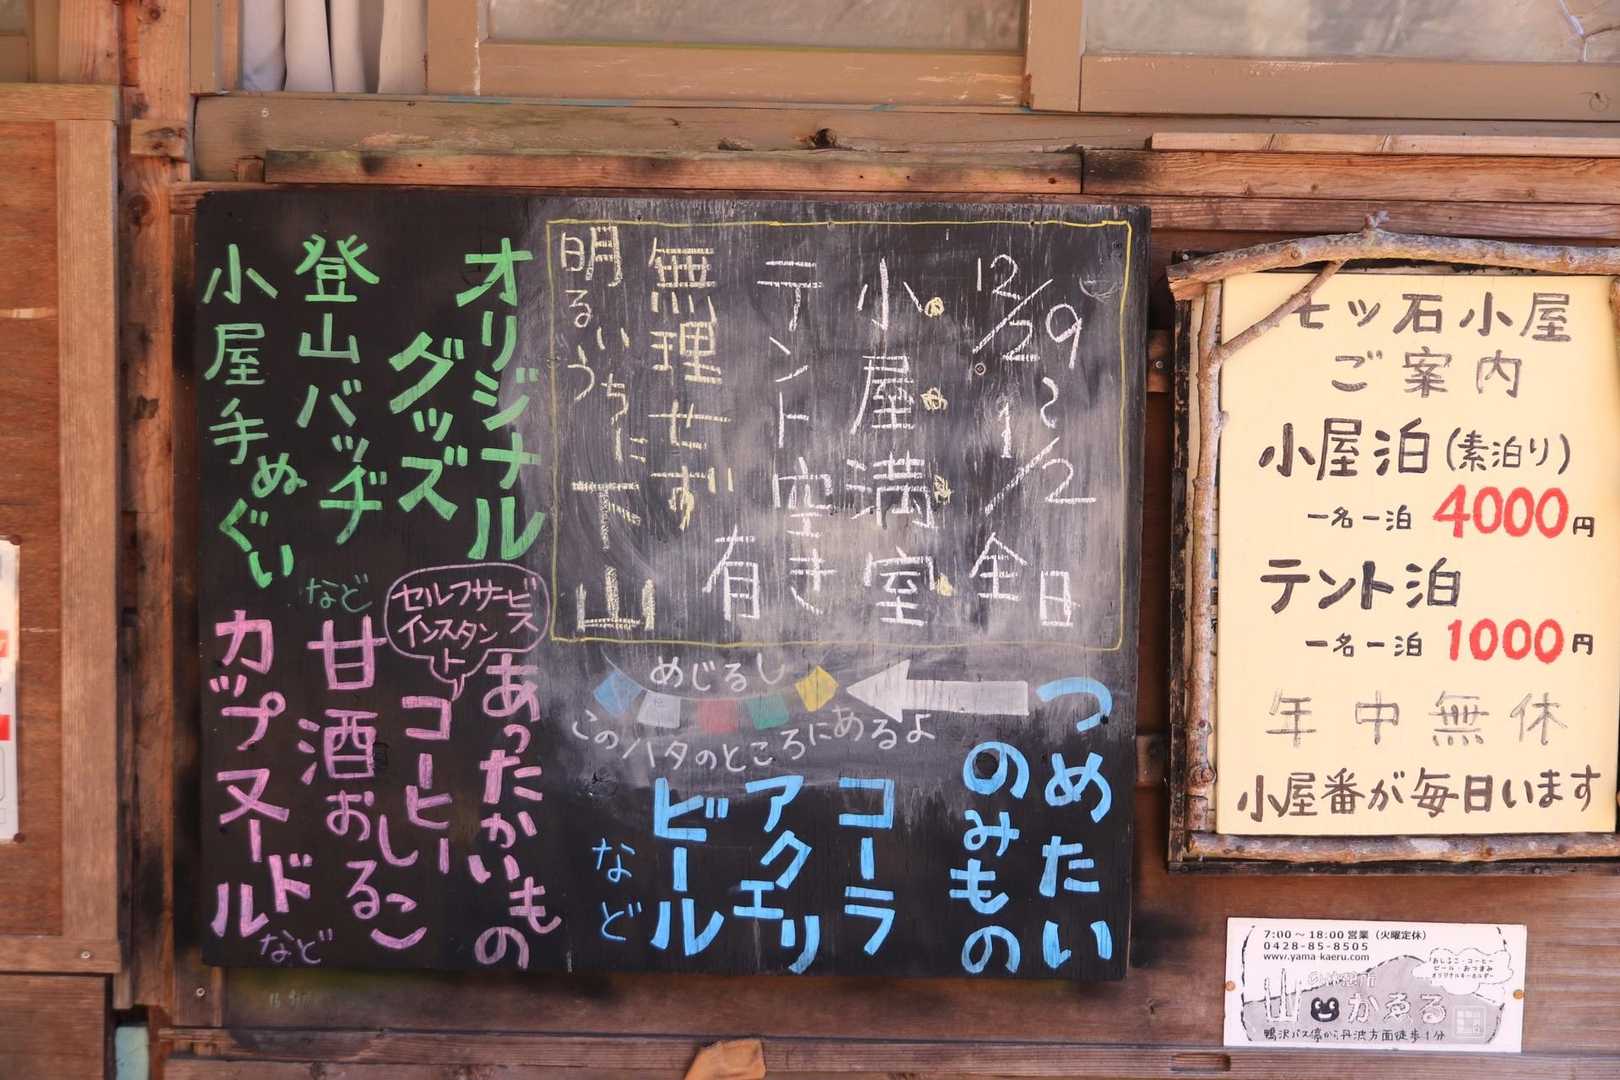 12/29〜1/2全日
小屋満室
テント空き有
無理せず
明るいうちに下山
オリジナル
グッズ
登山バッヂ
小屋手ぬぐい
など
めじるし
このハタのところにあるよ
つめたい
のみもの
コーラ
アクエリ
ビール
など
あったかいもの
セルフサービス
インスタント
コーヒー
甘酒おしるこ
カップヌードル
など
七ツ石小屋
ご案内
小屋泊(素泊り)
一名一泊 4000円
テント泊
一名一泊 1000円
年中無休
小屋番が毎日います
7:00～18:00営業（火曜定休）
0428-85-8505
www.yama-kaeru.com
おしるこ・コーヒー
ビール・おつまみ
オリジナルキーホルダー
山の休憩所
かゑる
鴨沢バス停から丹波方面徒歩1分